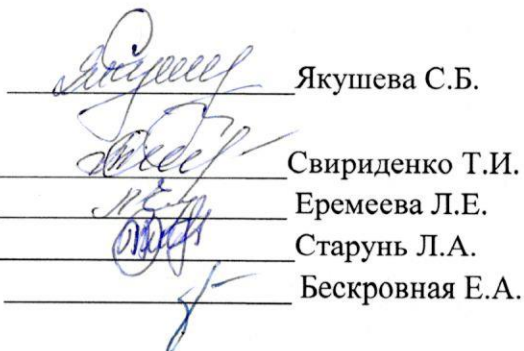 Якушева С.Б.
Свириденко Т.И.
Еремеева Л.Е.
Старунь Л.А.
Бескровная Е.А.